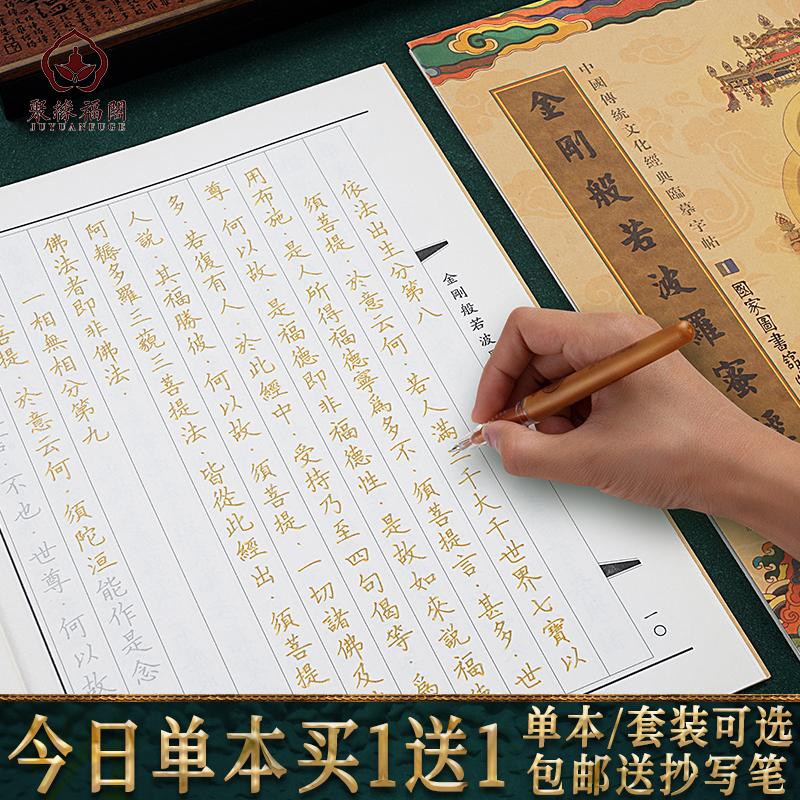 聚緣福閣
JUYUANFUGE
中國傳統文化經典臨摹字帖
金剛般若波羅蜜經
國家圖書館
金剛般若波
依法出生分第八
須菩提．於意云何．若人滿三千大千世界七寶以
用布施．是人所得福德寧爲多不．須菩提言．甚多．世
尊．何以故．是福德即非福德性．是故如來說福
多．若復有人．於此經中．受持乃至四句偈等．爲
人說．其福勝彼．何以故．須菩提．一切諸佛及
阿耨多羅三藐三菩提法．皆從此經出．須菩提
佛法者即非佛法．
一相無相分第九
菩提．於意云何．須陀洹能作是念
不也．世尊．何以故
一〇
今日单本买1送1
单本/套装可选
包邮送抄写笔